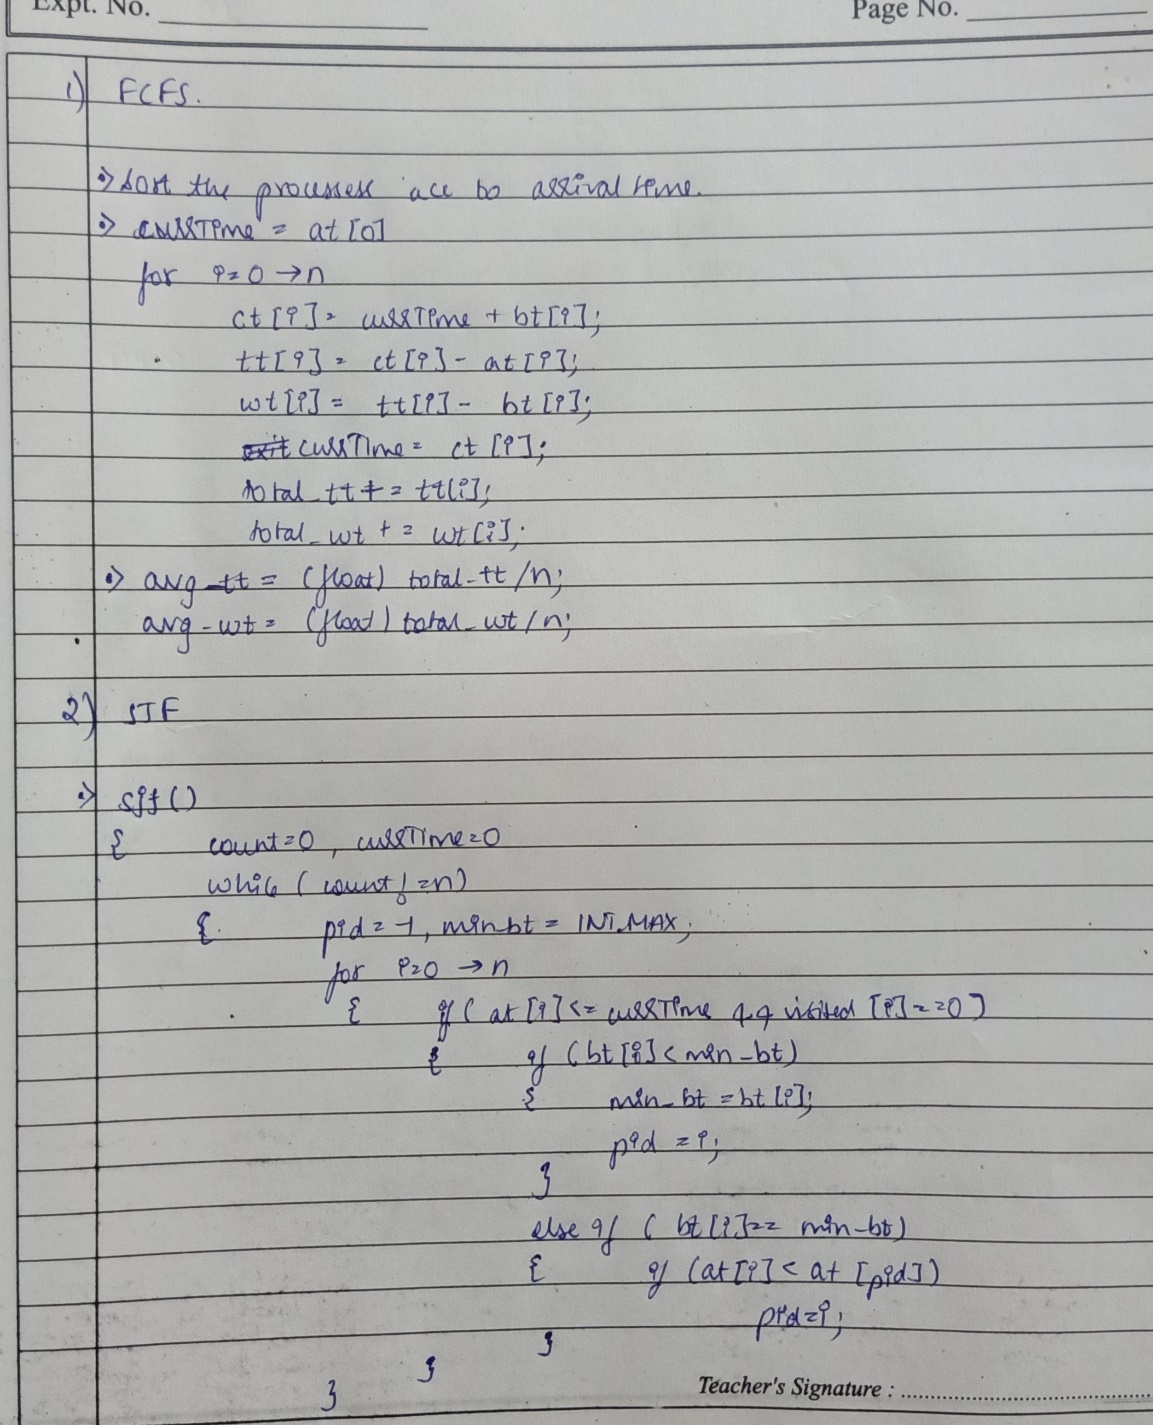 Expt. No.
Page No.
1) FCFS.
•> Sort the processes acc to arrival time.
•> currTime = at[0]
for i=0 → n
ct[i] = currTime + bt[i];
tt[i] = ct[i] - at[i];
wt[i] = tt[i] - bt[i];
currTime = ct[i];
total_tt += tt[i];
total_wt += wt[i];
•> avg_tt = (float) total_tt/n;
avg_wt = (float) total_wt/n;
2) SJF
•> sjf()
{ count=0, currTime=0
while (count!=n)
{ pid=-1, min bt = INT_MAX;
for i=0 → n
{ if (at[i]<=currTime && visited[i]==0)
{ if (bt[i]<min_bt)
{ min_bt = bt[i];
pid = i;
}
else if (bt[i]== min_bt)
{ if (at[i]< at[pid])
pid=i;
}
}
}
Teacher's Signature :